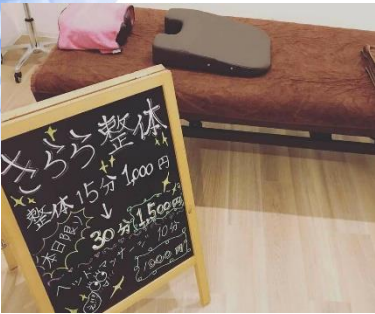 きらら整体
整体 15分 1,000円
↓
本日限り
30分 1,500円
ヘッドマッサージ
10分
1000円